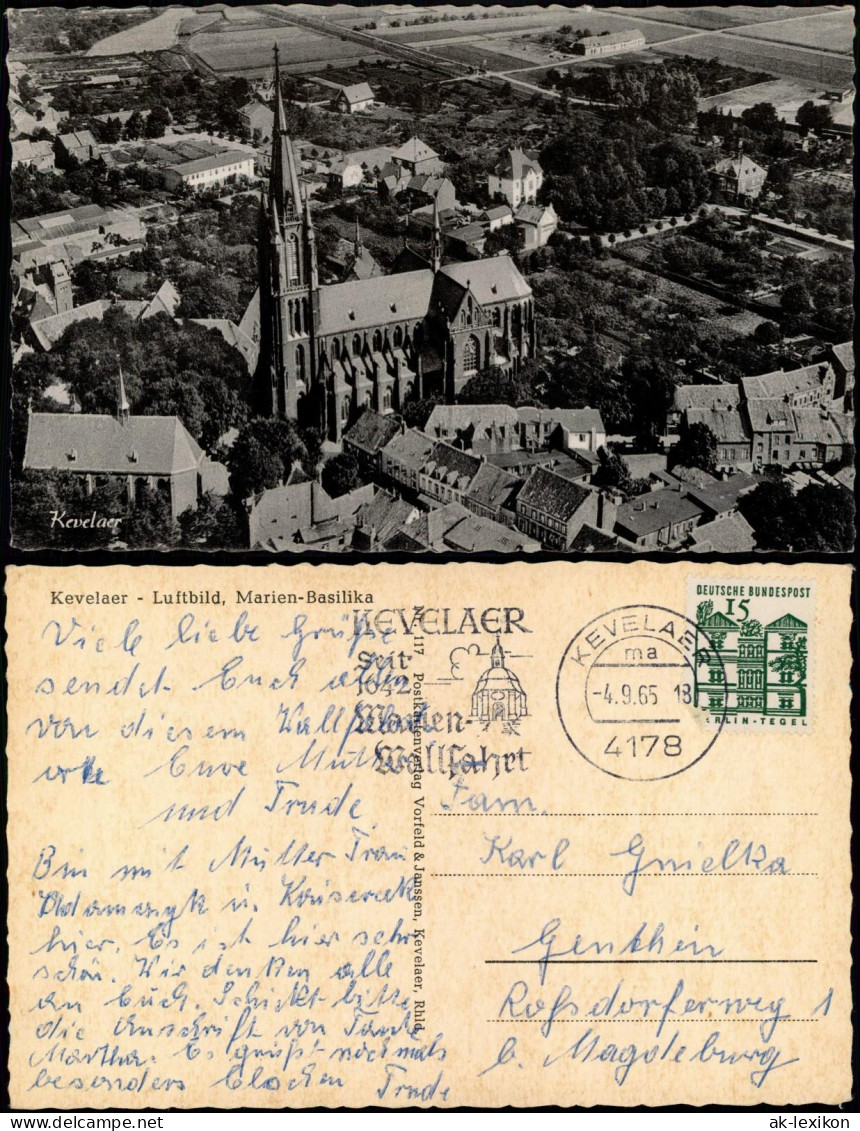 Kevelaer
Kevelaer - Luftbild, Marien-Basilika
Viele liebe Grüße
sendet Euch allen
von diesem Wallfahrts
orte Eure Mutter
und Trude
Bin mit Mutter Frau
Adamczyk u.
hier. Es ist hier sehr
schön. Wir denken alle
an Euch. Schickt bitte
die Anschrift von Tante
Martha. Es grüßt nochmals
besonders Trude
Nr. 117 Postkartenverlag Vorfeld & Janssen, Kevelaer, Rhld.
KEVELAER
Seit
1642
Marien-
Wallfahrt
KEVELAER
ma
-4.9.65 18
4178
DEUTSCHE BUNDESPOST
15
BERLIN-TEGEL
Fam.
Karl Gnielka
Genthin
Roßdorferweg 1
b. Magdeburg
www.ak-lexikon.de
ak-lexikon